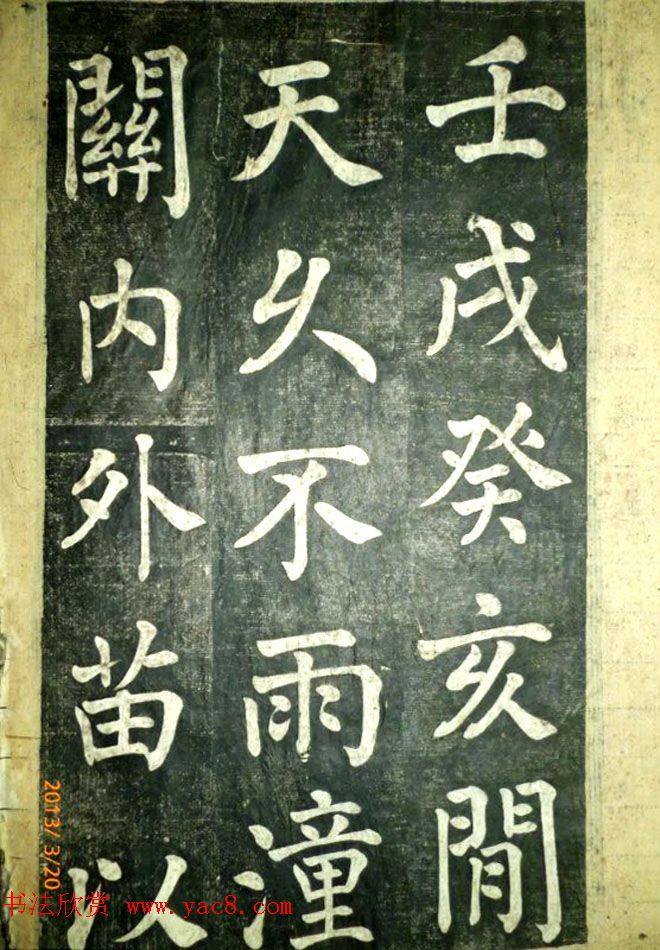 壬戌癸亥閒
天久不雨潼
關内外苗以
2013/3/20
书法欣赏 www.yac8.com